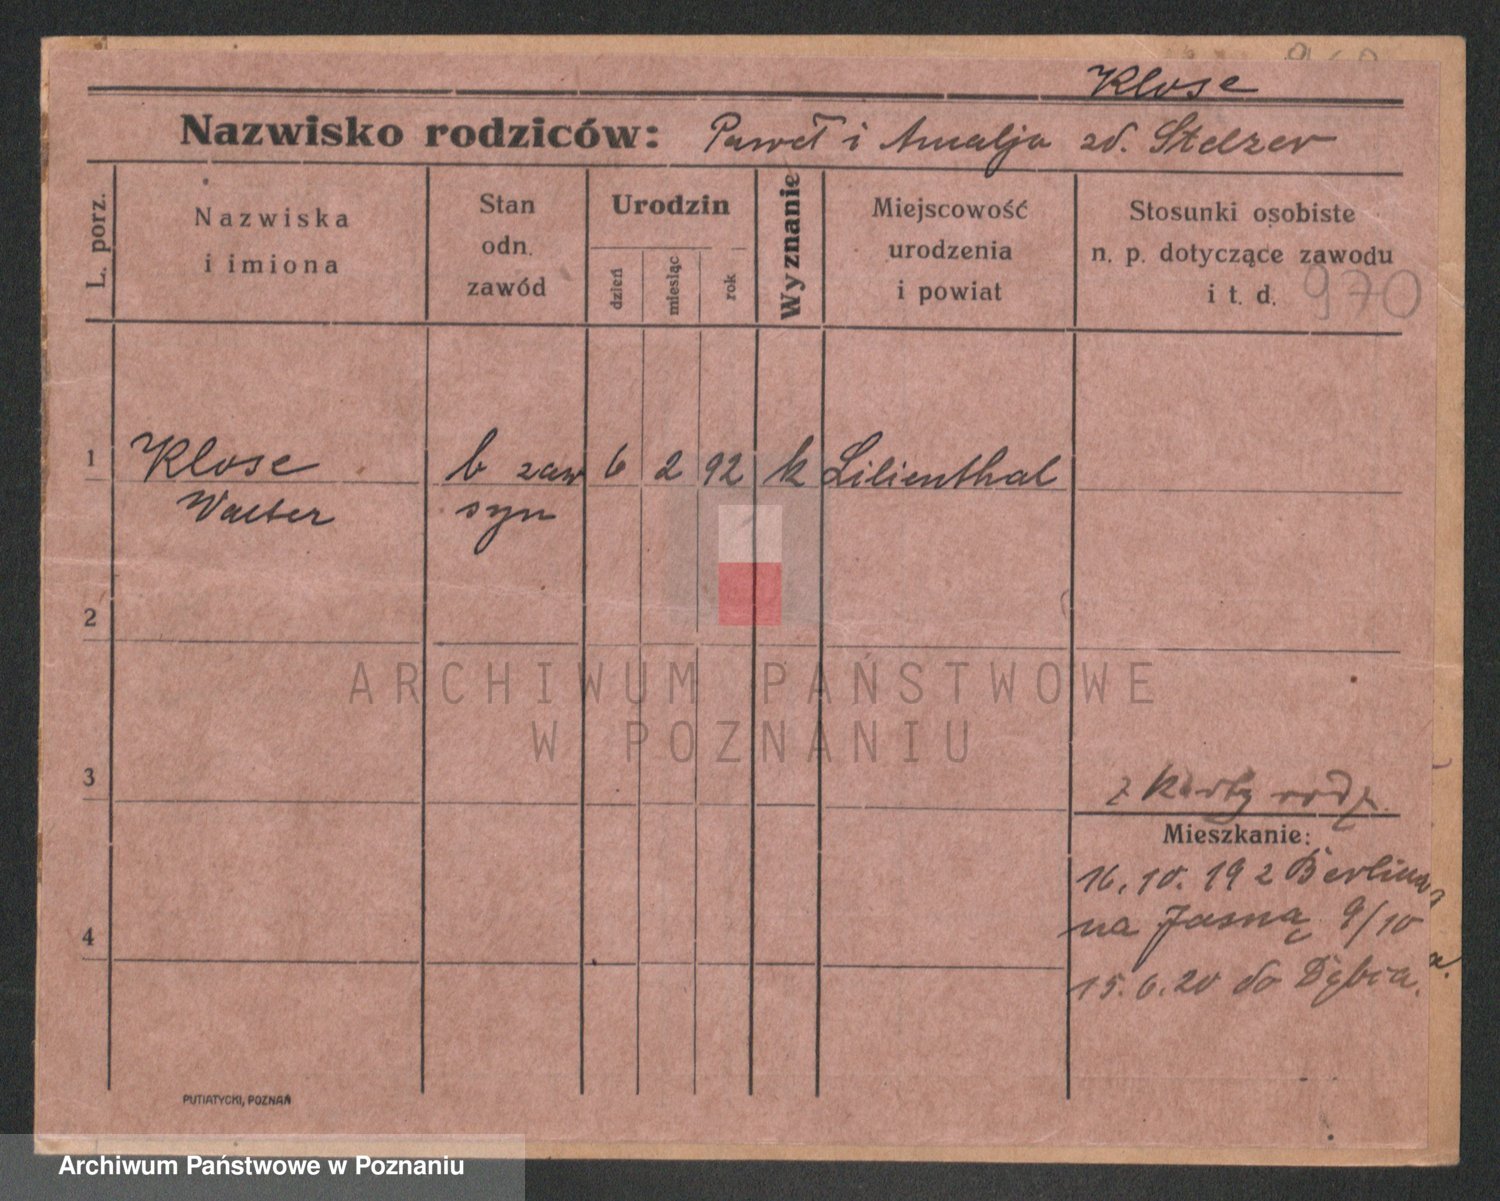 Klose
Nazwisko rodziców: Paweł i Amalja zd. Stelzer
L. porz.
Nazwiska
i imiona
Stan
odn.
zawód
Urodzin
dzień
miesiąc
rok
Wyznanie
Miejscowość
urodzenia
i powiat
Stosunki osobiste
n. p. dotyczące zawodu
i t. d.
970
1 Klose b zaw 6 2 92 k Lilienthal
Walter syn
2
ARCHIWUM PAŃSTWOWE
W POZNANIU
3
z karty rodz.
Mieszkanie:
16.10.192 Berlina
na Jasną 9/10
4
15.6.20 do Dębca.
PUTIATYCKI, POZNAŃ
Archiwum Państwowe w Poznaniu